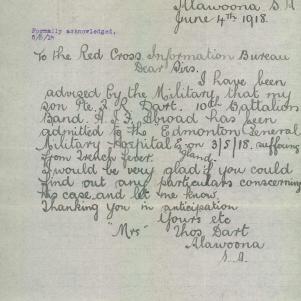 Alawoona. S. A
June 4th 1918.
Formally acknowledged,
To the Red Cross Information Bureau
Dear Sirs.
I have been
advised by the Military that my
son Pte. L R. Dart. 10th Battalion
Band. A.I.F. Abroad has been
admitted to the Edmonton General
Military Hospital Eng. on 3/5/18. suffering
from Trench Fever.
I would be very glad if you could
find out any particulars conscerning
his case and let me know.
Thanking you in anticipation
Yours etc
"Mrs" Thos Dart
Alawoona
S. A.